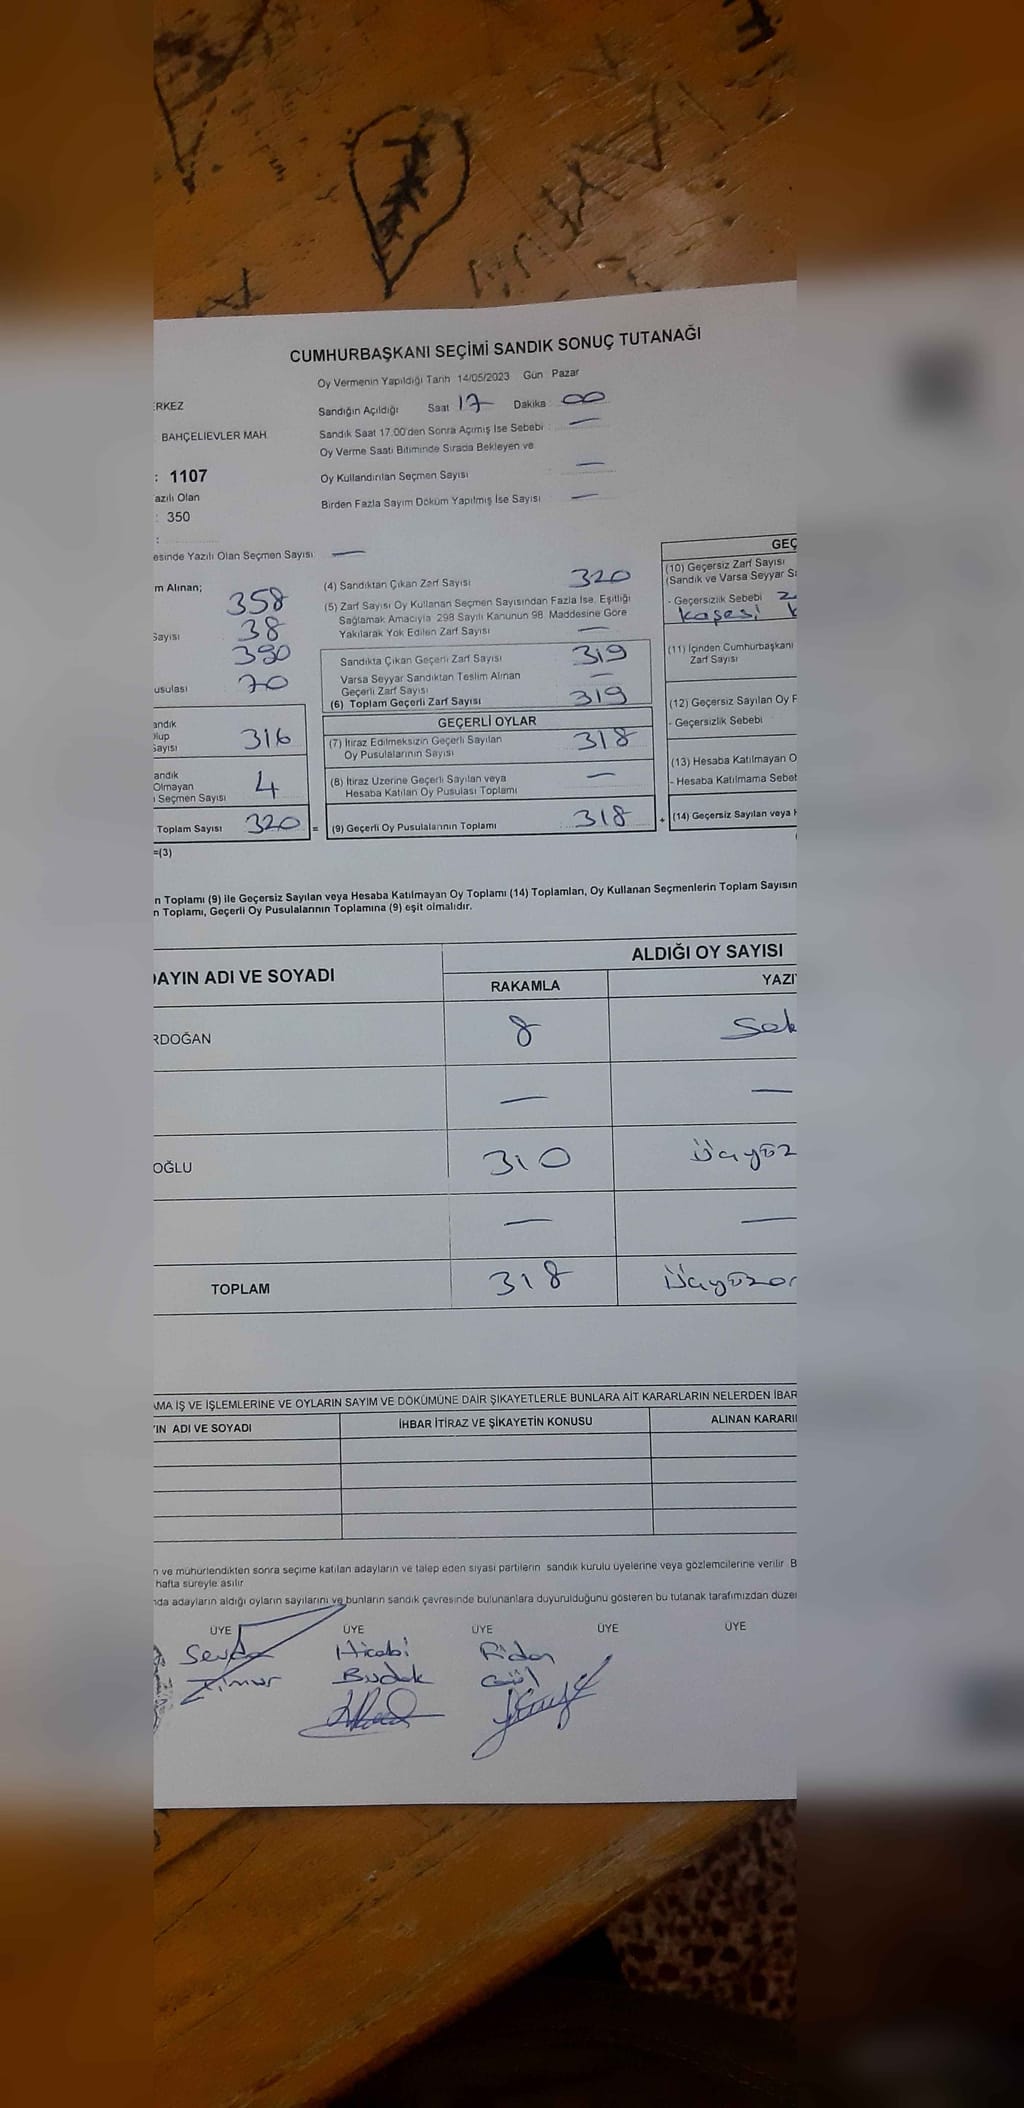 CUMHURBAŞKANI SEÇİMİ SANDIK SONUÇ TUTANAĞI
Oy Vermenin Yapıldığı Tarih 14/05/2023 Gün Pazar
ERKEZ
Sandığın Açıldığı Saat 17 Dakika 00
BAHÇELİEVLER MAH.
Sandık Saat 17.00'den Sonra Açımış İse Sebebi : —
Oy Verme Saati Bitiminde Sırada Bekleyen ve
: 1107
Oy Kullandırılan Seçmen Sayısı —
azılı Olan
Birden Fazla Sayım Döküm Yapılmış İse Sayısı —
: 350
:
esinde Yazılı Olan Seçmen Sayısı —
m Alınan;
358
Sayısı 38
390
usulası 70
andık
olup
Sayısı 316
andık
Olmayan
ı Seçmen Sayısı 4
Toplam Sayısı 320 =
=(3)
(4) Sandıktan Çıkan Zarf Sayısı 320
(5) Zarf Sayısı Oy Kullanan Seçmen Sayısından Fazla İse, Eşitliği
Sağlamak Amacıyla 298 Sayılı Kanunun 98. Maddesine Göre
Yakılarak Yok Edilen Zarf Sayısı —
Sandıkta Çıkan Geçerli Zarf Sayısı 319
Varsa Seyyar Sandıktan Teslim Alınan
Geçerli Zarf Sayısı —
(6) Toplam Geçerli Zarf Sayısı 319
GEÇERLİ OYLAR
(7) İtiraz Edilmeksizin Geçerli Sayılan
Oy Pusulalarının Sayısı 318
(8) İtiraz Üzerine Geçerli Sayılan veya
Hesaba Katılan Oy Pusulası Toplamı —
(9) Geçerli Oy Pusulalarının Toplamı 318 +
GEÇ
(10) Geçersiz Zarf Sayısı
(Sandık ve Varsa Seyyar S
- Geçersizlik Sebebi
kaşesi
(11) İçinden Cumhurbaşkanı
Zarf Sayısı
(12) Geçersiz Sayılan Oy P
- Geçersizlik Sebebi
(13) Hesaba Katılmayan O
- Hesaba Katılmama Sebe
(14) Geçersiz Sayılan veya H
n Toplamı (9) ile Geçersiz Sayılan veya Hesaba Katılmayan Oy Toplamı (14) Toplamları, Oy Kullanan Seçmenlerin Toplam Sayısın
n Toplamı, Geçerli Oy Pusulalarının Toplamına (9) eşit olmalıdır.
AYIN ADI VE SOYADI
ALDIĞI OY SAYISI
RAKAMLA YAZI
RDOĞAN 8 Sek
— —
OĞLU 310 Üçyüz
— —
TOPLAM 318 Üçyüzo
AMA İŞ VE İŞLEMLERİNE VE OYLARIN SAYIM VE DÖKÜMÜNE DAİR ŞİKAYETLERLE BUNLARA AİT KARARLARIN NELERDEN İBAR
IN ADI VE SOYADI İHBAR İTİRAZ VE ŞİKAYETİN KONUSU ALINAN KARARI
n ve mühürlendikten sonra seçime katılan adayların ve talep eden siyasi partilerin sandık kurulu üyelerine veya gözlemcilerine verilir. B
hafta süreyle asılır.
nda adayların aldığı oyların sayılarını ve bunların sandık çevresinde bulunanlara duyurulduğunu gösteren bu tutanak tarafımızdan düze
ÜYE ÜYE ÜYE ÜYE ÜYE
Hicabi
Budak